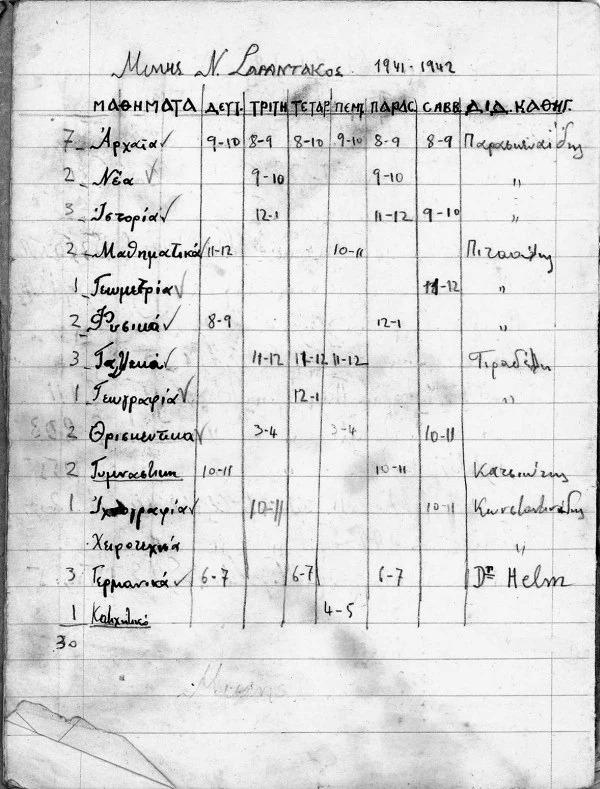 Μιμης Ν. Σαραντακος 1941-1942
ΜΑΘΗΜΑΤΑ ΔΕΥΤ. ΤΡΙΤΗ ΤΕΤΑΡ ΠΕΜΠ ΠΑΡΑΣ ΣΑΒΒ ΔΙΔ. ΚΑΘΗΓ.
7 Ἀρχαῖα 9-10 8-9 8-10 9-10 8-9 8-9
2 Νέα 9-10 9-10 "
3 Ἱστορία 12-1 11-12 9-10 "
2 Μαθηματικά 11-12 10-11
1 Γεωμετρία 11-12 "
2 Φυσικά 8-9 12-1 "
3 Γαλλικά 11-12 11-12 11-12
1 Γεωγραφία 12-1 "
2 Θρισκευτικα 3-4 3-4 10-11
2 Γυμναστικη 10-11 10-11
1 Ἰχνογραφία 10-11 10-11 Κωνσταντινίδης
Χειροτεχνία "
3 Γερμανικά 6-7 6-7 6-7 Dr Helm
1 Κατηχητικό 4-5
30
Μιμης